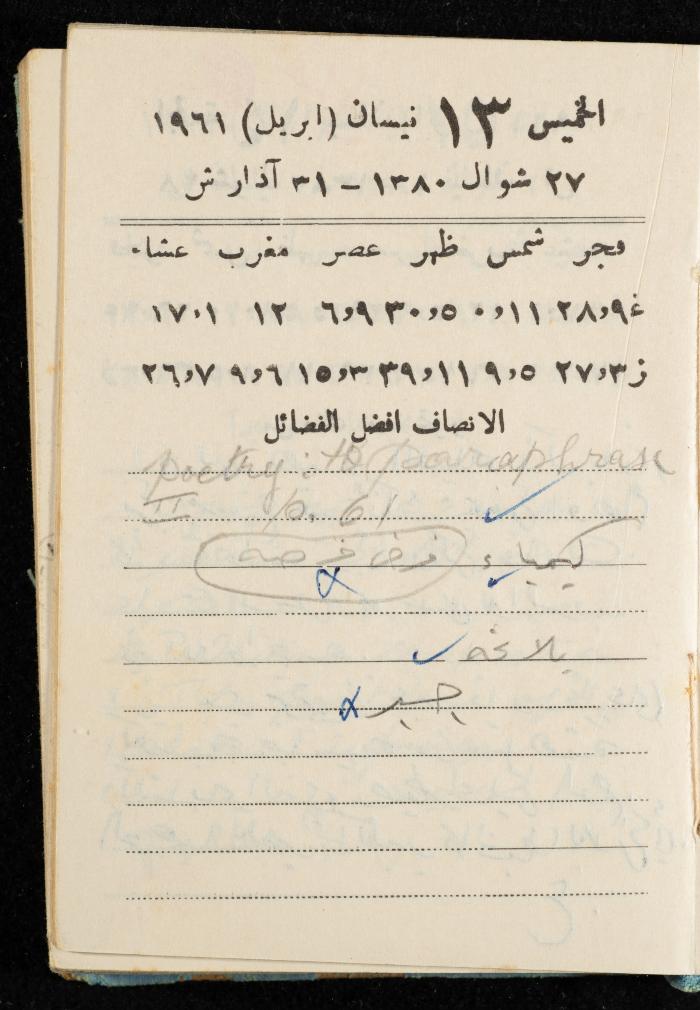 الخميس ١٣ نيسان (ابريل) ١٩٦١
٢٧ شوال ١٣٨٠ – ٣١ آذار ش
فجر شمس ظهر عصر مغرب عشاء
غ ٩و٢٨ ١١و٠ ٥و٣٠ ٩و٦ ١٢ ١و١٧
ز ٣و٢٧ ٥و٩ ١١و٣٩ ٣و١٥ ٦و٩ ٧و٢٦
الانصاف افضل الفضائل
poetry : to paraphrase
II p. 61 ✓
كيمياء ✓ فرض فرصة
بلاغة ✓
جبر